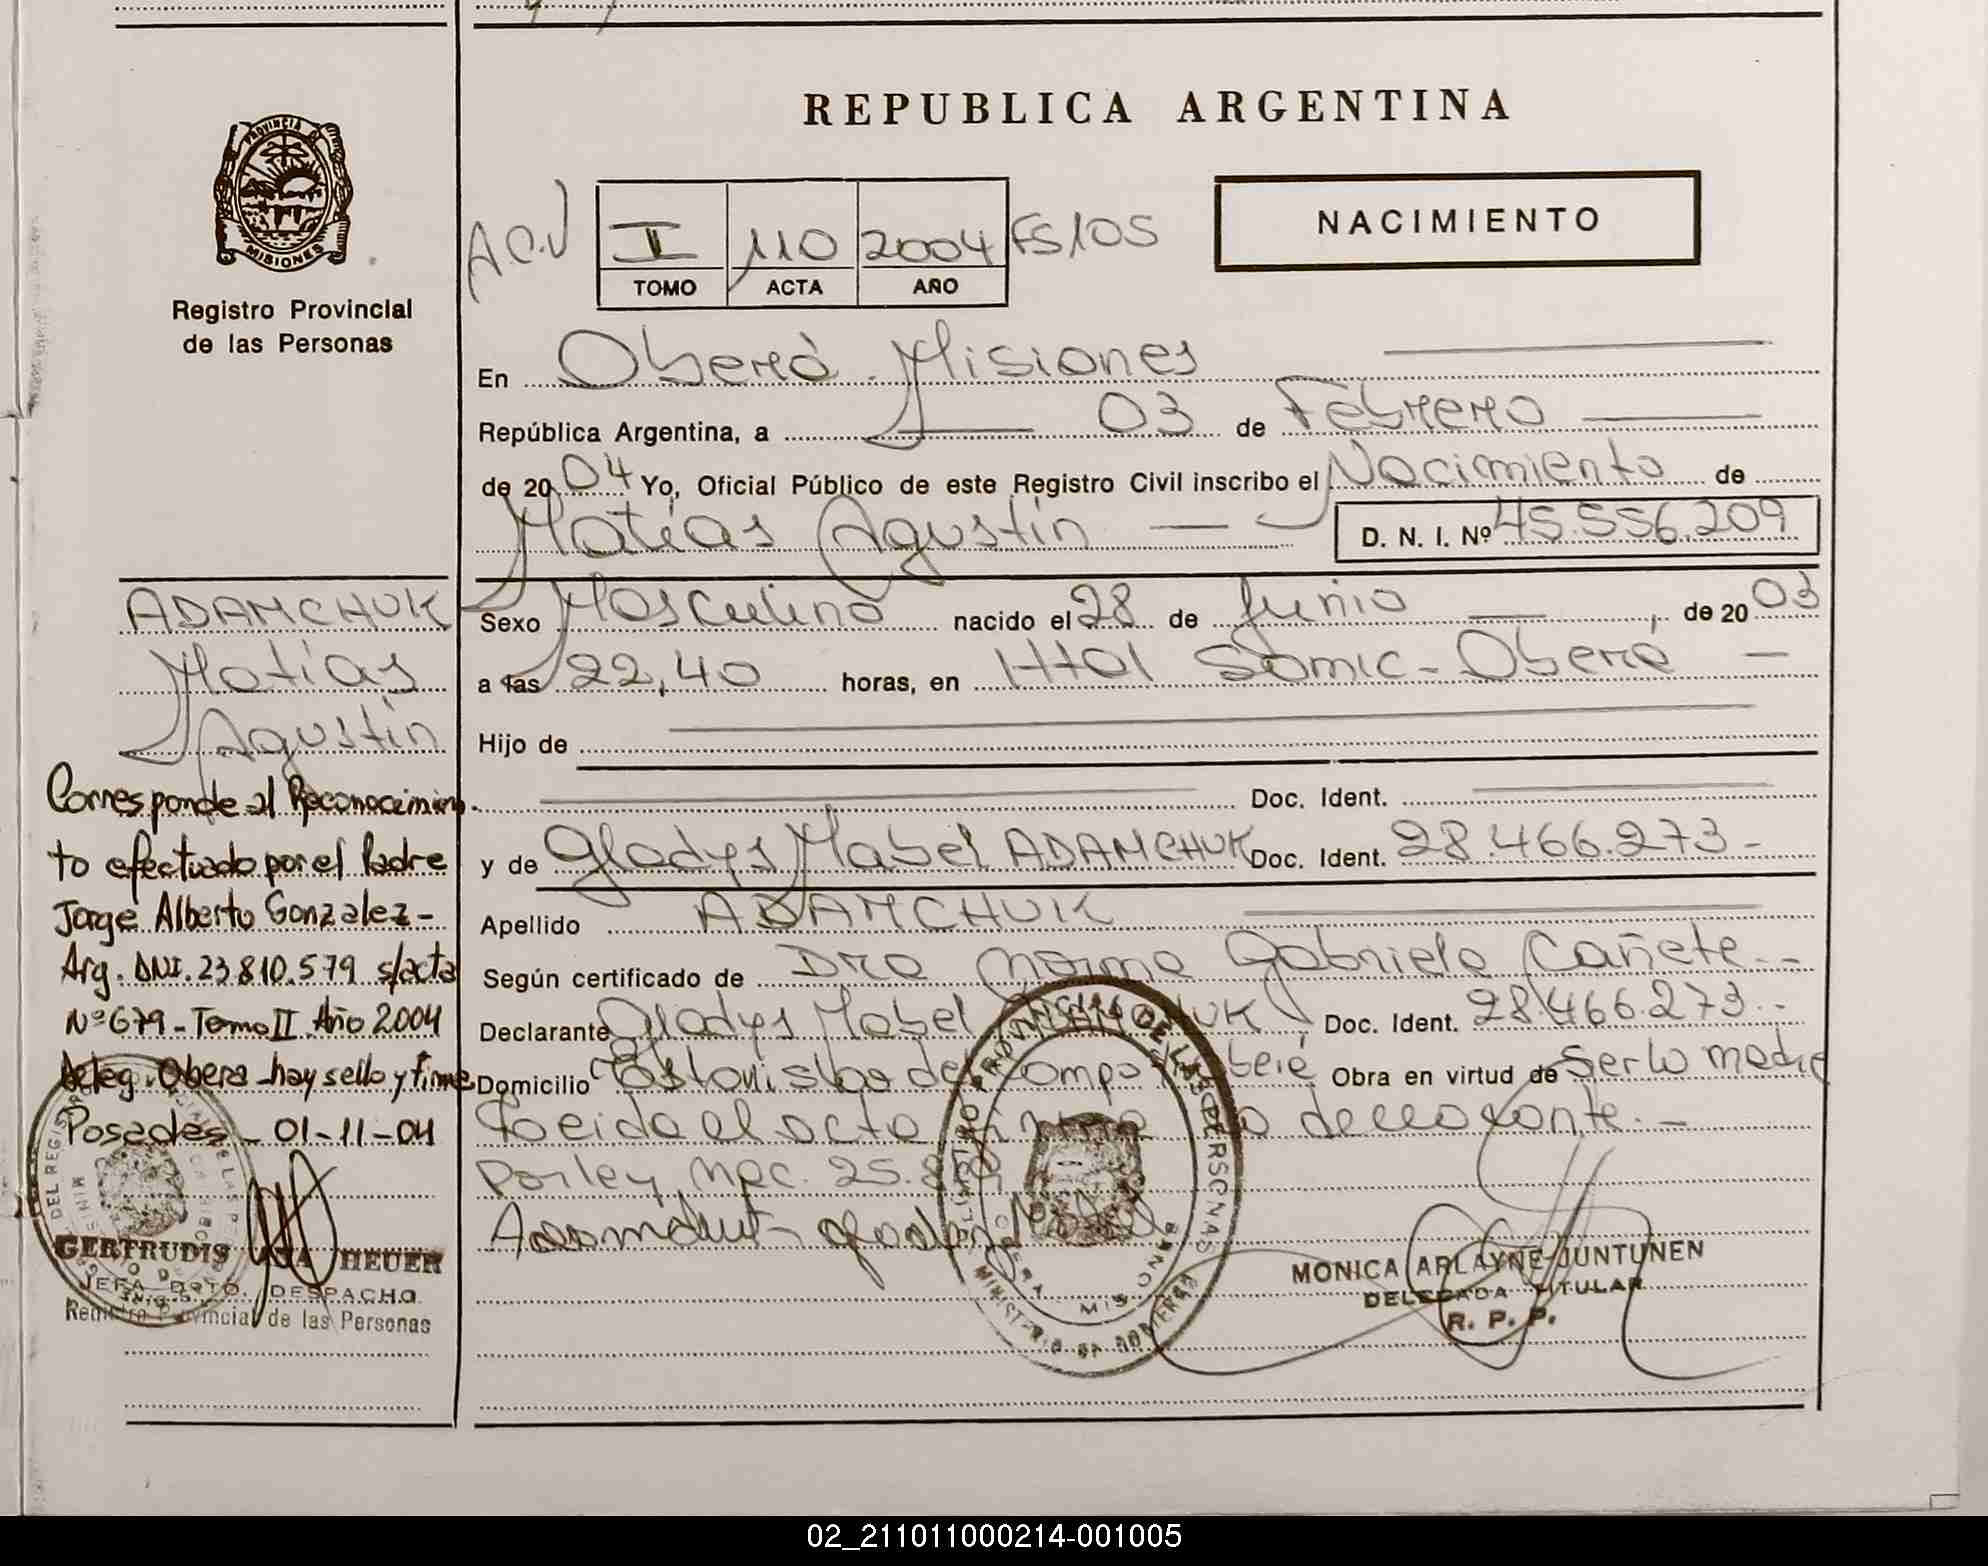 REPUBLICA ARGENTINA
NACIMIENTO
PROVINCIA DE
MISIONES
Registro Provincial
de las Personas
I 110 2004 FS105
TOMO ACTA AÑO
En Oberá Misiones
República Argentina, a 03 de Febrero
de 2004 Yo, Oficial Público de este Registro Civil inscribo el Nacimiento de
Matías Agustín D. N. I. Nº 45.556.209
Sexo Masculino nacido el 28 de Junio, de 2003
a las 22,40 horas, en Htal Samic - Oberá
Hijo de
Doc. Ident.
y de Gladys Mabel ADAMCHUK Doc. Ident. 28.466.273-
Apellido ADAMCHUK
Según certificado de Dra Norma Gabriela Cañete
Declarante Gladys Mabel Doc. Ident. 28.466.273
Domicilio Obra en virtud de Ser la madre
Leida el acta la declarante.-
por ley
ADAMCHUK
Matías
Agustín
Corresponde al Reconocimien
to efectuado por el Padre
Jorge Alberto Gonzalez-
Arg. DNI. 23810.579 s/acta
Nº 679 - Tomo II Año 2004
Deleg. Obera - hay sello y firma
Posadas - 01-11-04
GERTRUDIS HEUER
JEFA DPTO. DESPACHO
Registro Provincial de las Personas
MONICA ARLAYNE JUNTUNEN
DELEGADA TITULAR
R. P. P.
02_211011000214-001005